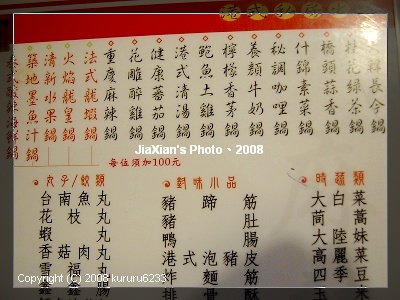 長今鍋
桂花綠茶鍋
橋頭香菇鍋
什錦素菜鍋
秘調咖哩鍋
養顏牛奶鍋
檸檬香茅鍋
鮑魚土雞鍋
港式清湯鍋
健康蕃茄鍋
花雕醉雞鍋
重慶麻辣鍋
法式龍蝦鍋
火焰龍皇鍋
清新水果鍋
築地墨魚汁鍋
泰式酸辣海鮮鍋
每位須加100元
JiaXian's Photo、2008
時蔬類
大白菜
茼蒿
大陸妹
高麗菜
四季豆
對味小品
豬蹄筋
豬肚
鴨腸
港式泡豬皮
炸麵筋
丸子/餃類
台南魚丸
花枝丸
蝦丸
香菇肉丸
Copyright (c) 2008 kururu6233